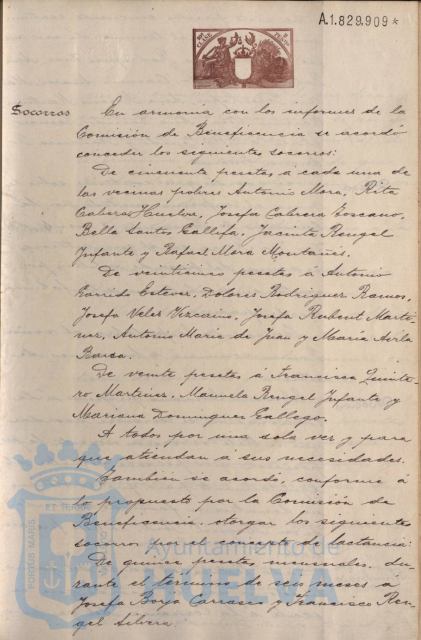 A.1.829.909*
Socorros
En armonía con los informes de la
Comisión de Beneficencia se acordó
conceder los siguientes socorros:
De cincuenta pesetas á cada una de
las vecinas pobres Antonio Mora, Rita
Cabeza Huelva, Josefa Cabrera Toscano,
Bella Santos Gallifa, Jacinta Rengel
Infante y Rafael Mora Montañés.
De veinticinco pesetas á Antonio
Garrido Estevez, Dolores Rodriguez Ramos,
Josefa Velez Vizcaino, Josefa Rubent Marti-
nez, Antonio Maria de Juan y Maria
Barea.
De veinte pesetas á Francisca Quinte-
ro Martinez, Manuela Rengel Infante y
Mariana Dominguez Gallego.
A todos por una sola vez y para
que atiendan á sus necesidades.
Tambien se acordó, conforme á
lo propuesto por la Comisión de
Beneficencia, otorgar los siguientes
socorros por el concepto de lactancia:
De quince pesetas mensuales, du-
rante el término de seis meses á
Josefa Borja Carrasco y Francisco Ren-
gel Silvera.
PORTUS MARIS
ET TERRE
Ayuntamiento de
HUELVA